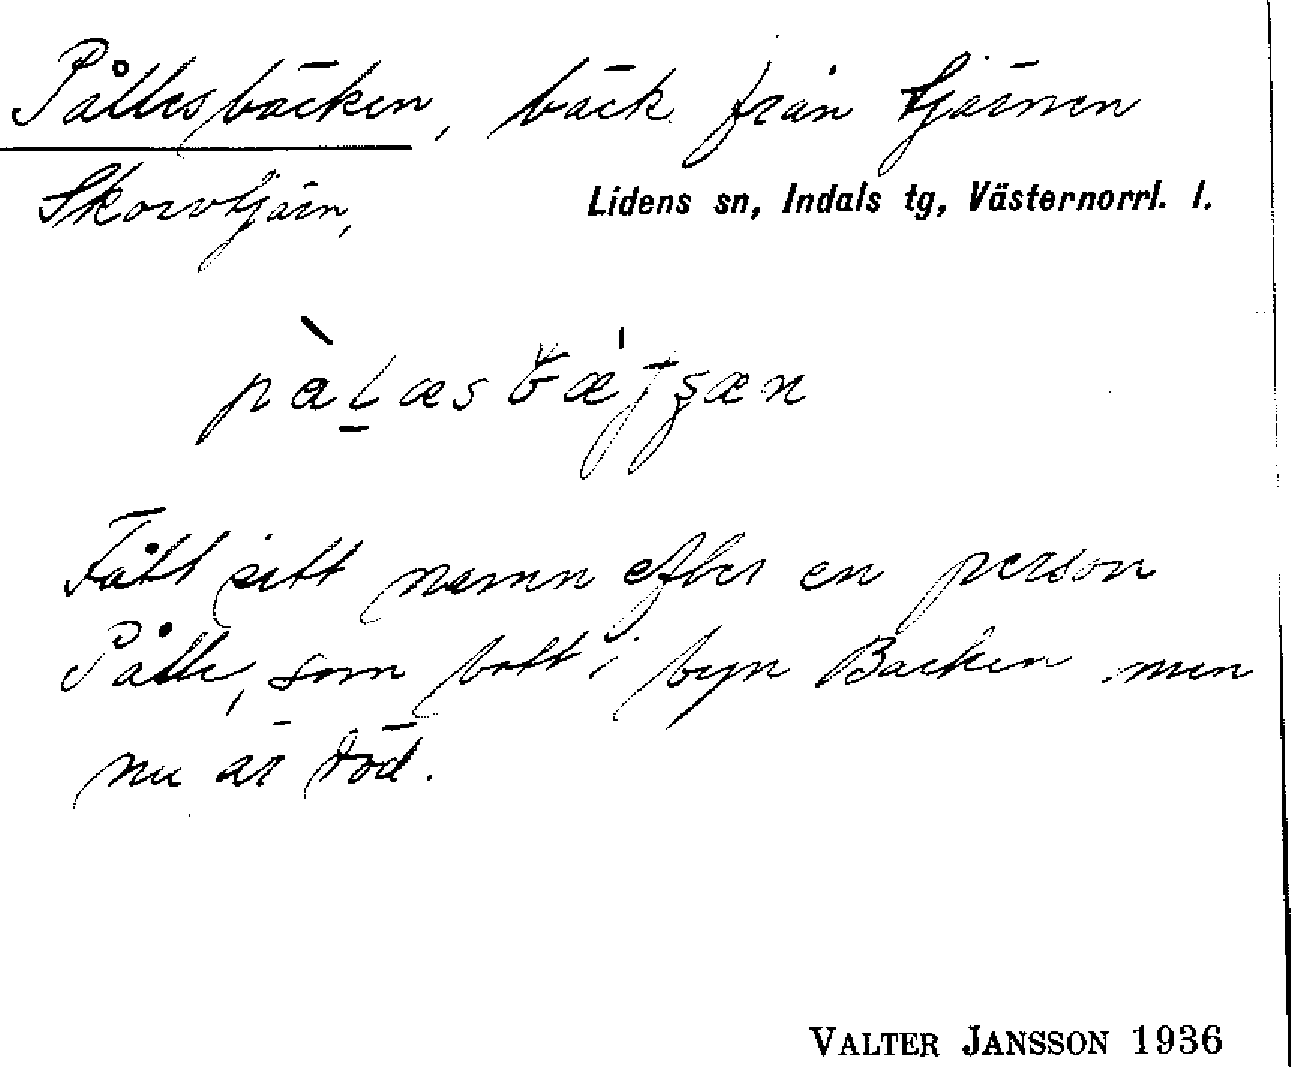 Pålles bäcken, bäck från tjärnen
Skorvtjärn,
Lidens sn, Indals tg, Västernorrl. l.
Fått sitt namn efter en person
Pålle, som bott i byn Backen men
nu är död.
VALTER JANSSON 1936